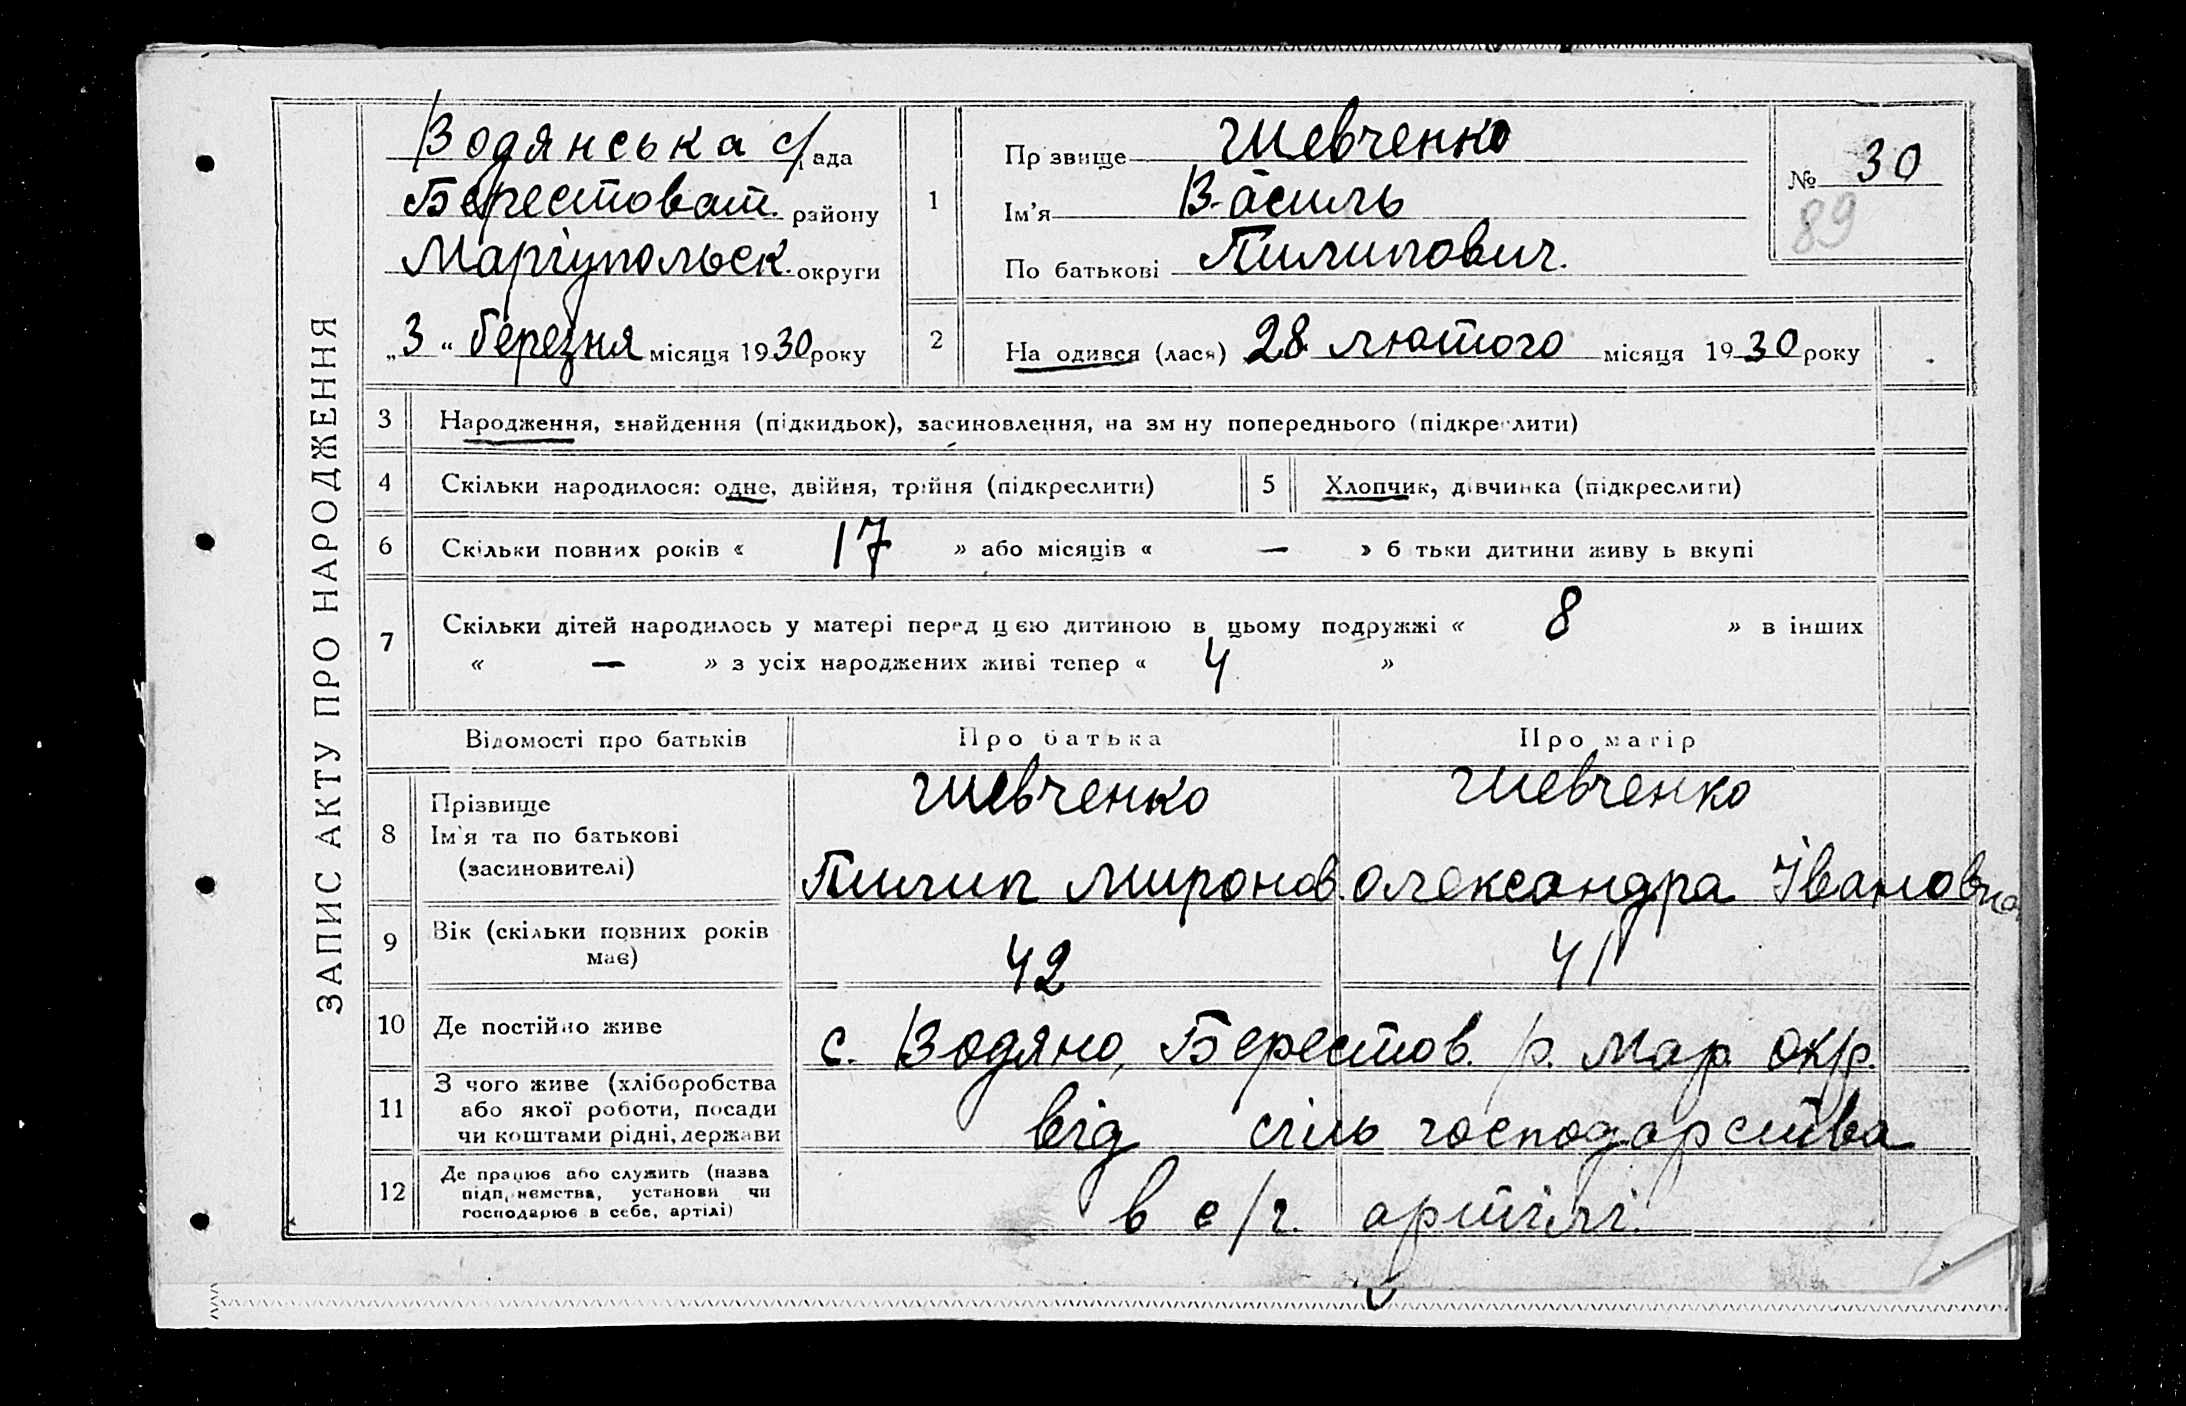 ЗАПИС АКТУ ПРО НАРОДЖЕННЯ
Водянська с/рада
Берестоват. району
Маріупольськ. округи
„3“ березня місяця 1930 року
1
Прізвище Шевченко
Ім'я Василь
По батькові Пилипович.
№ 30
89
2
Народився (лася) 28 лютого місяця 1930 року
3 Народження, знайдення (підкидьок), засиновлення, на зміну попереднього (підкреслити)
4 Скільки народилося: одне, двійня, трійня (підкреслити)
5 Хлопчик, дівчинка (підкреслити)
6 Скільки повних років « 17 » або місяців « — » батьки дитини живуть вкупі
7 Скільки дітей народилось у матері перед цією дитиною в цьому подружжі « 8 » в інших
« — » з усіх народжених живі тепер « 4 »
Відомості про батьків Про батька Про матір
8 Прізвище
Ім'я та по батькові
(засиновителі)
Шевченко
Пилип Миронов.
Шевченко
Олександра Івановна
9 Вік (скільки повних років
має)
42 41
10 Де постійно живе с. Водяно, Берестов. р. Мар. окр.
11 З чого живе (хліборобства
або якої роботи, посади
чи коштами рідні, держави
від сіль господарства
12 Де працює або служить (назва
підприємства, установи чи
господарює в себе, артілі)
в с/г. артілі.